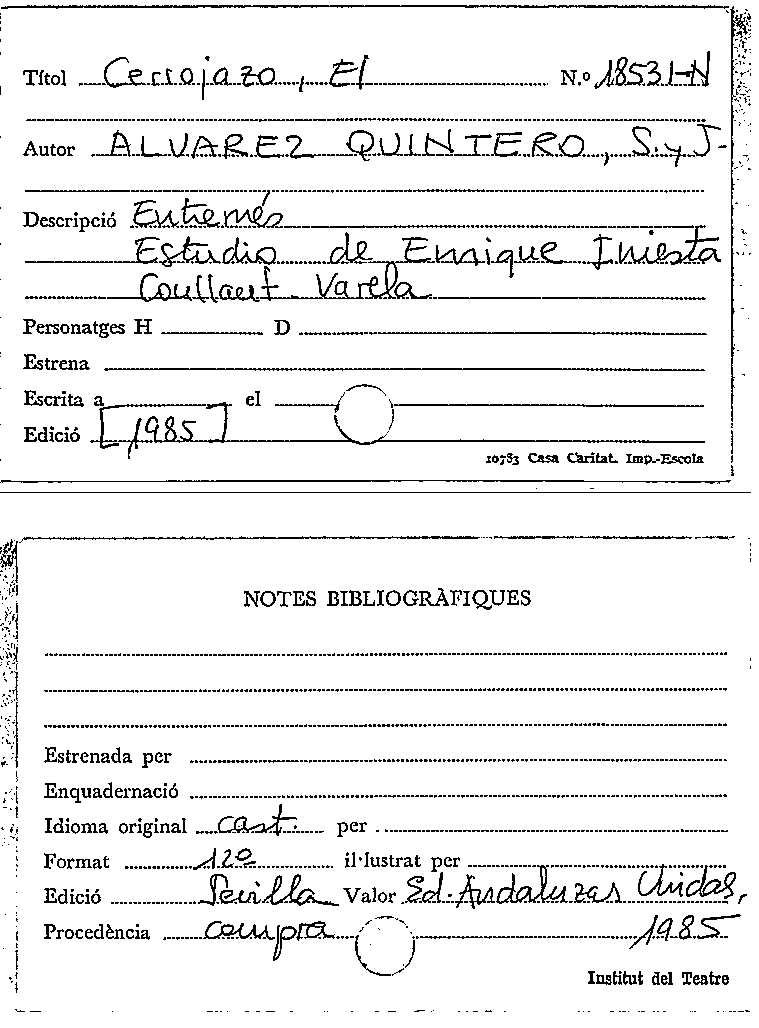 Títol Cerrojazo, El N.º 18531-N
Autor ALVAREZ QUINTERO, S. y J.
Descripció Entremés
Estudio de Enrique Iniesta
Coullaut-Varela
Personatges H D
Estrena
Escrita a el
Edició [1985]
10783 Casa Caritat. Imp.-Escola
NOTES BIBLIOGRÀFIQUES
Estrenada per
Enquadernació
Idioma original cast. per
Format 12º il·lustrat per
Edició Sevilla Valor Ed. Andaluzas Unidas,
Procedència compra 1985
Institut del Teatre